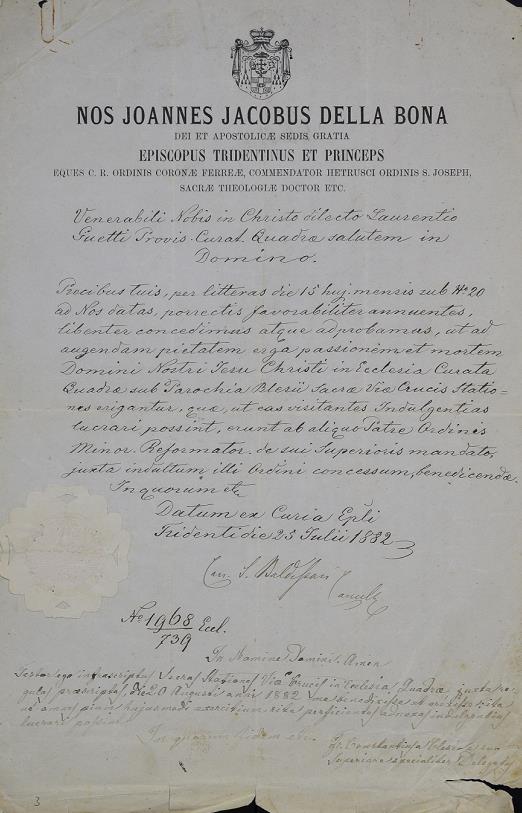 NOS JOANNES JACOBUS DELLA BONA
DEI ET APOSTOLICÆ SEDIS GRATIA
EPISCOPUS TRIDENTINUS ET PRINCEPS
EQUES C. R. ORDINIS CORONÆ FERREÆ, COMMENDATOR HETRUSCI ORDINIS S. JOSEPH,
SACRÆ THEOLOGIÆ DOCTOR ETC.
Venerabili Nobis in Christo dilecto Laurentio
Guetti Provis. Curat. Quadræ salutem in
Domino.
Precibus tuis, per litteras die 15 huj. mensis sub No 20
ad Nos datas, porrectis favorabiliter annuentes,
libenter concedimus atque adprobamus, ut ad
augendam pietatem erga passionem et mortem
Domini Nostri Jesu Christi in Ecclesia Curata
Quadræ sub Parochia Blesii Sacræ Viæ Crucis Statio=
nes erigantur, quæ, ut eas visitantes Indulgentias
lucrari possint, erunt ab aliquo Patre Ordinis
Minor. Reformator. de sui Superioris mandato,
juxta indultum illi Ordini concessum, benedicendæ.
In quorum etc.
Datum ex Curia Epli
Tridenti die 25 Julii 1882
No 1968 Eccl.
739
In Nomine Domini. Amen
infrascriptus Sacras Stationes Viæ Crucis in Ecclesia Quadræ juxta re=
gulas præscriptas die 20 Augusti anni 1882 benedixisse et erexisse ita
ut omnes hujusmodi exercitium rite perficientes adnexas indulgentias
lucrari possint.
In quorum fidem etc.
Fr. Constantius
Superiore specialiter Delegatus
3